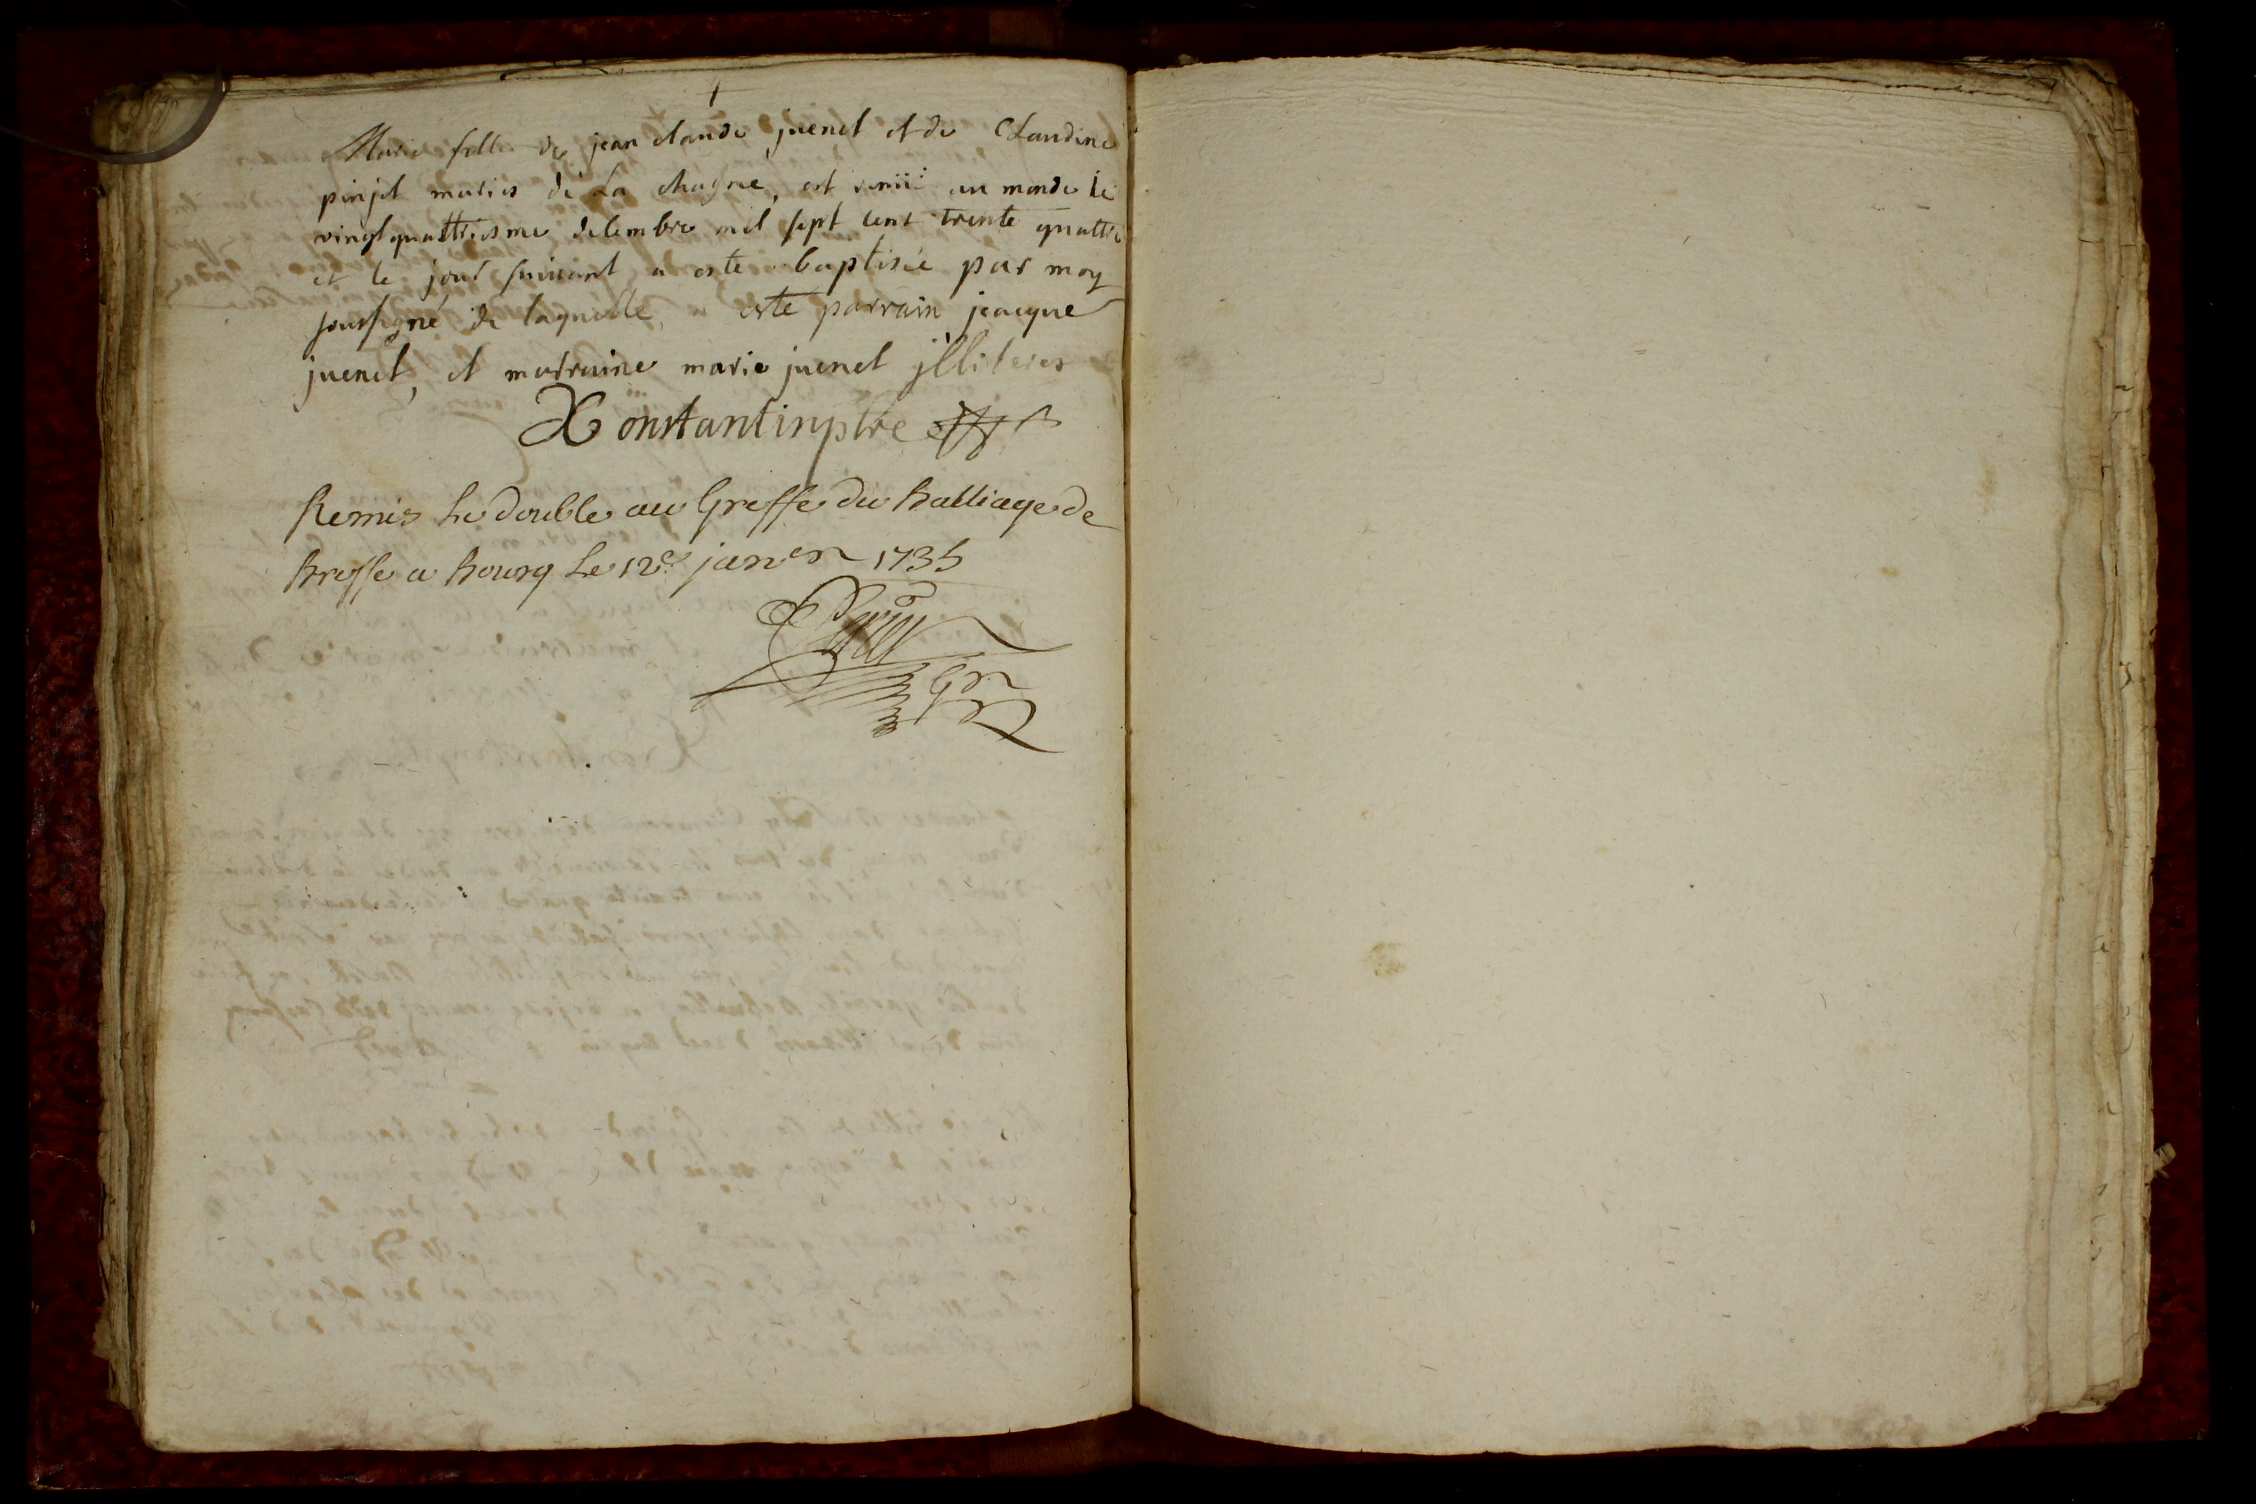 Marie fille de jean claude juenet et de Claudine
pinjet maries de La chagne, est venüe au monde le
vingtquattriesme decembre mil sept cent trente quattre
et le jour suivant a esté baptisée par moy
soussigné de laquelle a esté parrain jeacque
juenet, et marraine marie juenet jlliteres
Constantin ptre
Remis Le double au Greffe du Balliage de
Bresse a Bourg Le 12e janer 1735